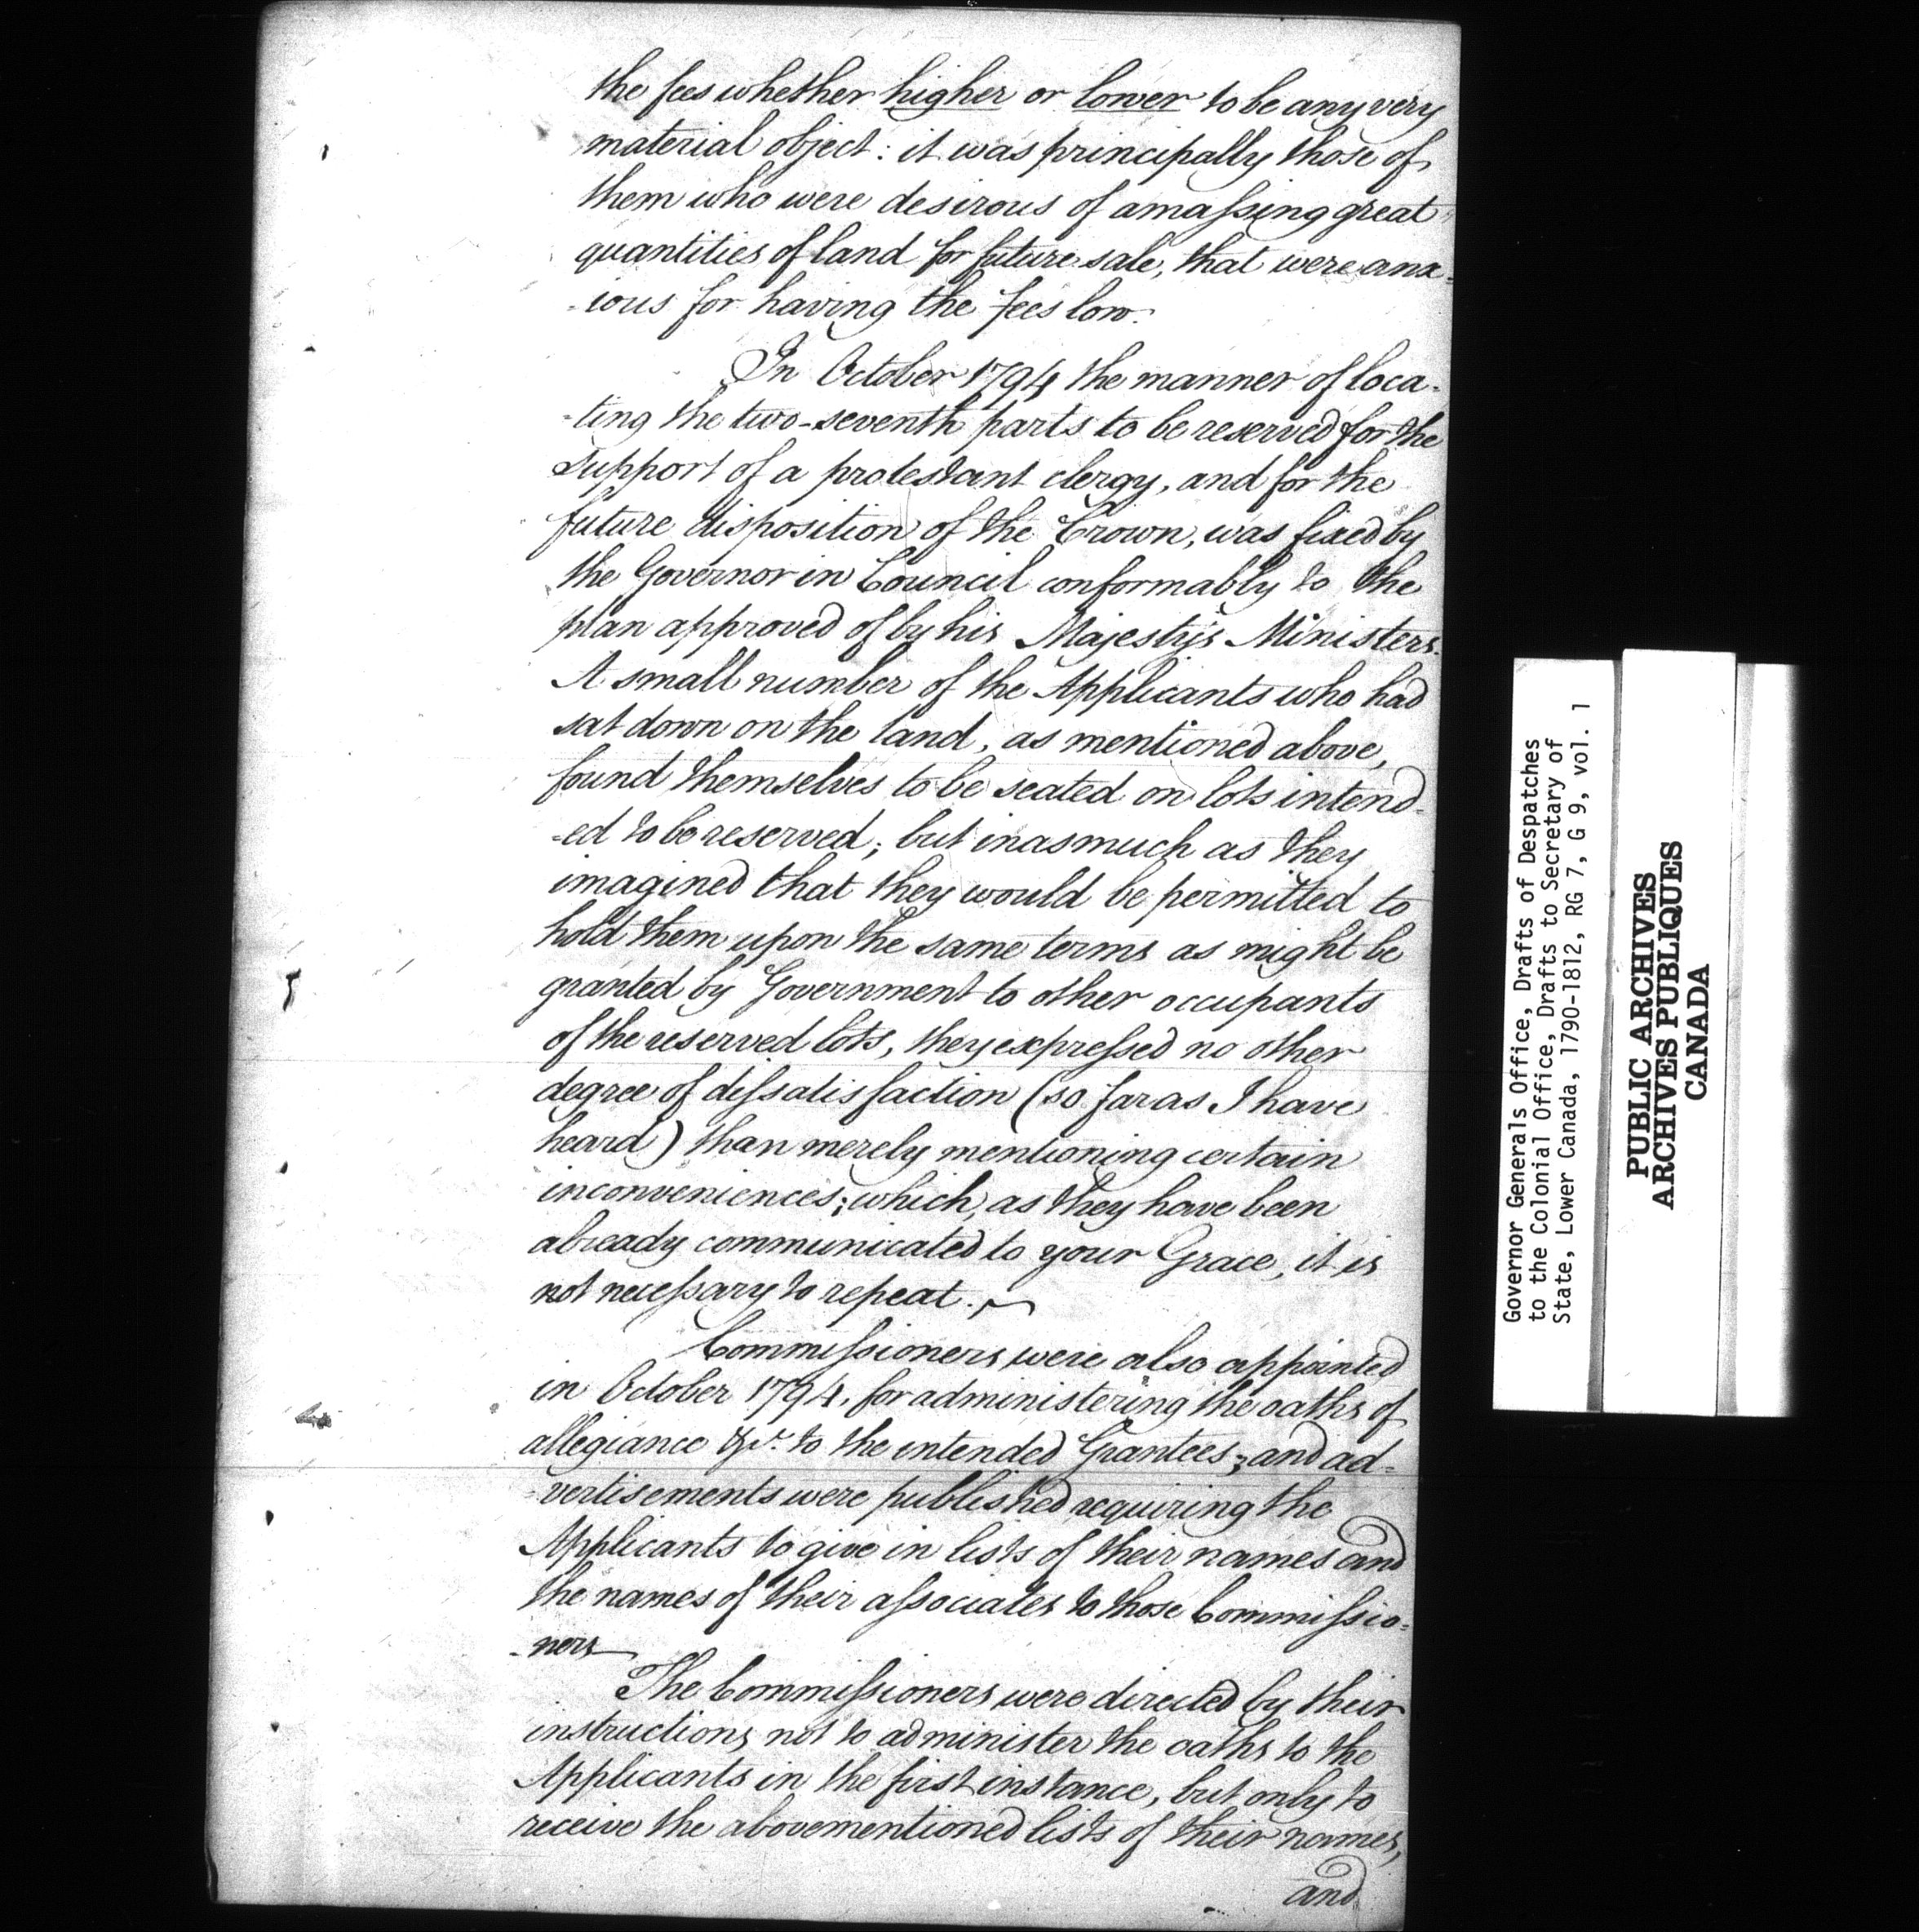 the fees whether higher or lower to be any very
material object: it was principally those of
them who were desirous of amaſsing great
quantities of land for future sale, that were anx-
-ious for having the fees low.
In October 1794 the manner of loca-
-ting the two-seventh parts to be reserved for the
support of a protestant clergy, and for the
future disposition of the Crown, was fixed by
the Governor in Council conformably to the
plan approved of by his Majesty's Ministers.
A small number of the Applicants who had
sat down on the land, as mentioned above,
found themselves to be seated on lots intend-
-ed to be reserved; but inasmuch as they
imagined that they would be permitted to
hold them upon the same terms as might be
granted by Government to other occupants
of the reserved lots, they expreſsed no other
degree of diſsatisfaction (so far as I have
heard) than merely mentioning certain
inconveniences; which, as they have been
already communicated to your Grace, it is
not neceſsary to repeat.
Commiſsioners were also appointed
in October 1794, for administering the oaths of
allegiance &c. to the intended Grantees; and ad-
-vertisements were published requiring the
Applicants to give in lists of their names and
the names of their aſsociates to those Commiſsio-
-ners
The Commiſsioners were directed by their
instructions not to administer the oaths to the
Applicants in the first instance, but only to
receive the abovementioned lists of their names,
and
Governor Generals Office, Drafts of Despatches
to the Colonial Office, Drafts to Secretary of
State, Lower Canada, 1790-1812, RG 7, G 9, vol. 1
PUBLIC ARCHIVES
ARCHIVES PUBLIQUES
CANADA